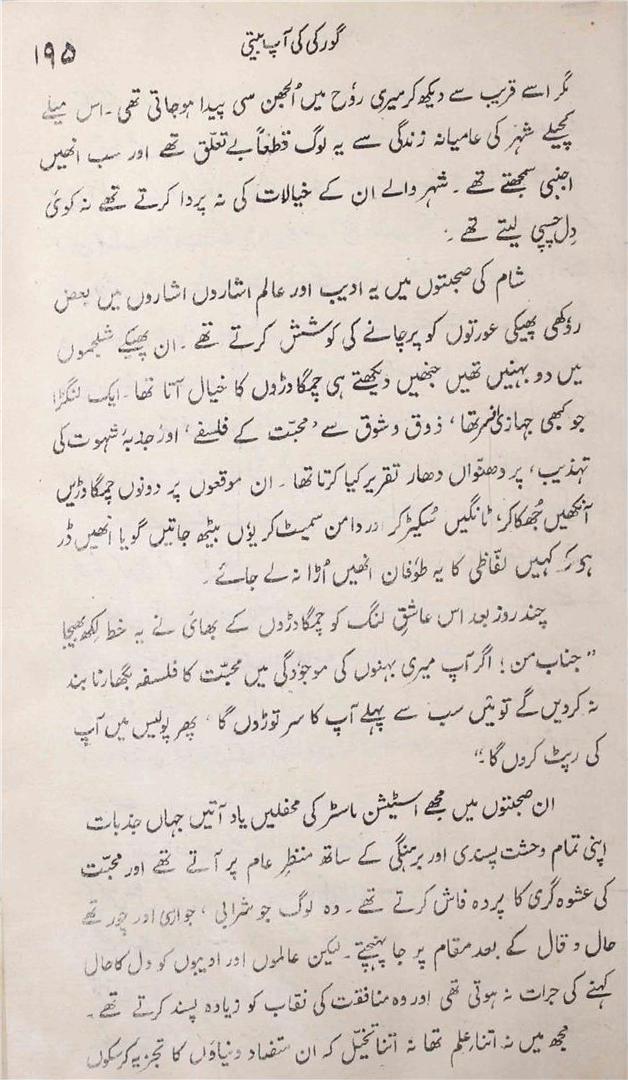 گورکی کی آپ بیتی
۱۹۵
مگر اسے قریب سے دیکھ کر میری رُوح میں اُلجھن سی پیدا ہو جاتی تھی۔ اس میلے
کچیلے شہر کی عامیانہ زندگی سے یہ لوگ قطعاً بے تعلق تھے اور سب انھیں
اجنبی سمجھتے تھے۔ شہر والے ان کے خیالات کی نہ پروا کرتے تھے نہ کوئی
دِل چسپی لیتے تھے۔
شام کی صحبتوں میں یہ ادیب اور عالم اشاروں اشاروں میں بعض
رُوکھی پھیکی عورتوں کو پرچانے کی کوشش کرتے تھے۔ ان پھیکے شلجموں
میں دو بہنیں تھیں جنھیں دیکھتے ہی چمگادڑوں کا خیال آتا تھا۔ ایک لنگڑا
جو کبھی جہازی افسر تھا، ذوق و شوق سے ’محبّت کے فلسفے‘ اور ’جذبۂ شہوت کی
تہذیب‘ پر دھنواں دھار تقریر کیا کرتا تھا۔ ان موقعوں پر دونوں چمگادڑیں
آنکھیں جُھکا کر، ٹانگیں سُکیڑ کر اور دامن سمیٹ کر یوُں بیٹھ جاتیں گویا انھیں ڈر
ہو کہ کہیں لفّاظی کا یہ طوُفان انھیں اُڑا نہ لے جائے۔
چند روز بعد اس عاشقِ لنگ کو چمگادڑوں کے بھائی نے یہ خط لکھ بھیجا
”جناب من! اگر آپ میری بہنوں کی موجوُدگی میں محبّت کا فلسفہ بگھارنا بند
نہ کردیں گے تو میَں سب سے پہلے آپ کا سر توڑوں گا، پھر پولیس میں آپ
کی رپٹ کروں گا۔“
ان صحبتوں میں مجھے اسٹیشن ماسٹر کی محفلیں یاد آتیں جہاں جذبات
اپنی تمام وحشت پسندی اور برہنگی کے ساتھ منظرِ عام پر آتے تھے اور محبّت
کی عشوہ گری کا پردہ فاش کرتے تھے۔ وہ لوگ جو شرابی، جواری اور چور تھے
حال و قال کے بعد مقام پر جا پہنچتے۔ لیکن عالموں اور ادیبوں کو دل کا حال
کہنے کی جرات نہ ہوتی تھی اور وہ منافقت کی نقاب کو زیادہ پسند کرتے تھے۔
مجھ میں نہ اتنا علم تھا نہ اتنا تخیّل کہ ان متضاد دنیاؤں کا تجزیہ کر سکوں